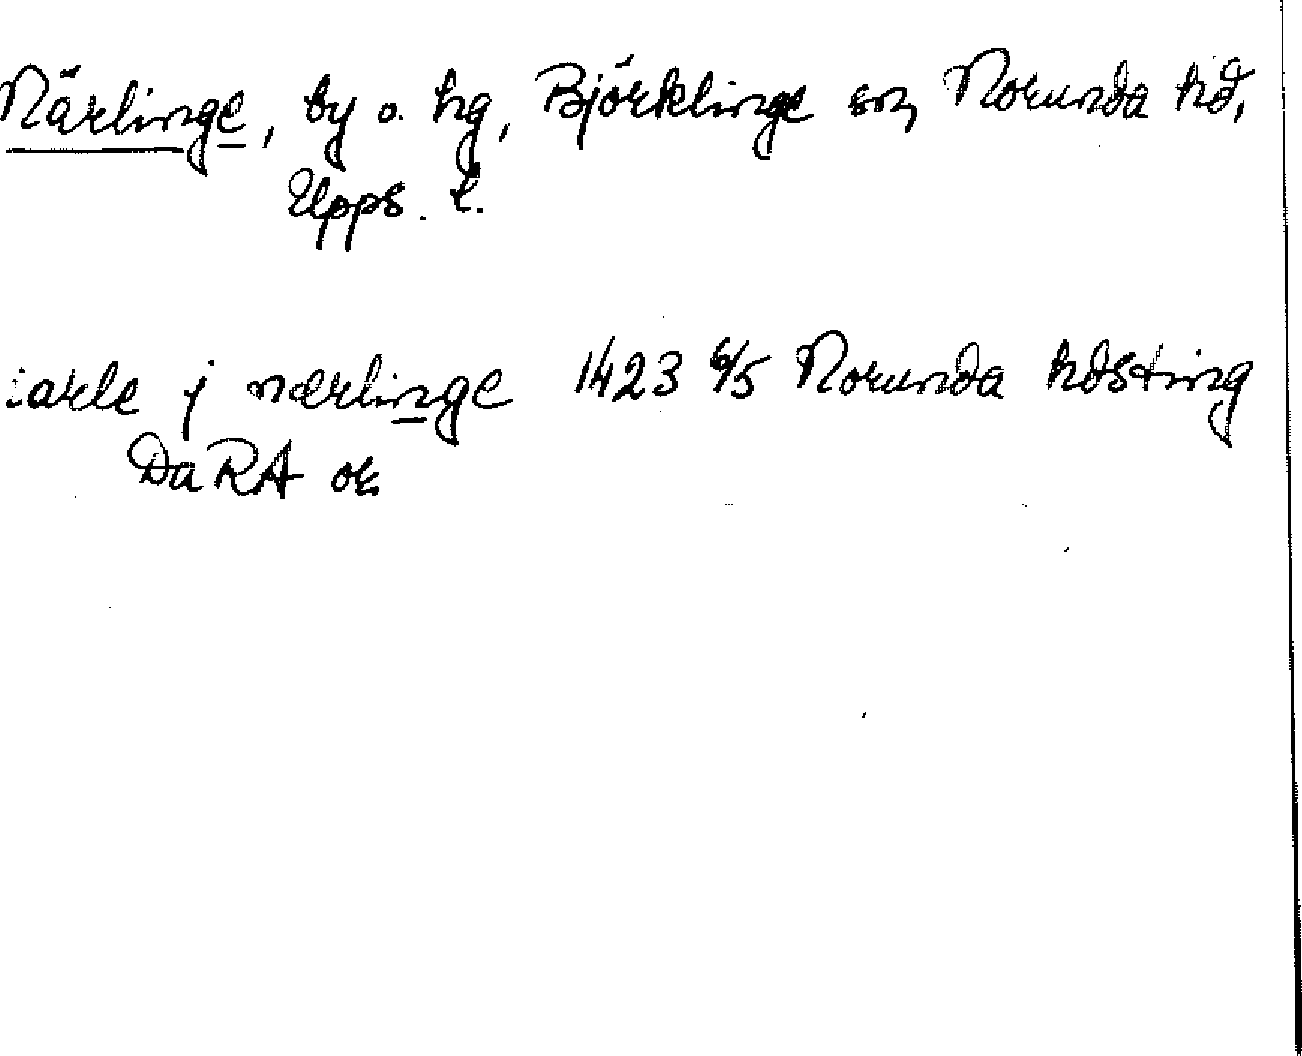 Närlinge, by o. hg, Björklinge sn, Norunda hd,
Upps. l.
iarle j nærlinge 1423 6/5 Norunda hdsting
Da RA or.